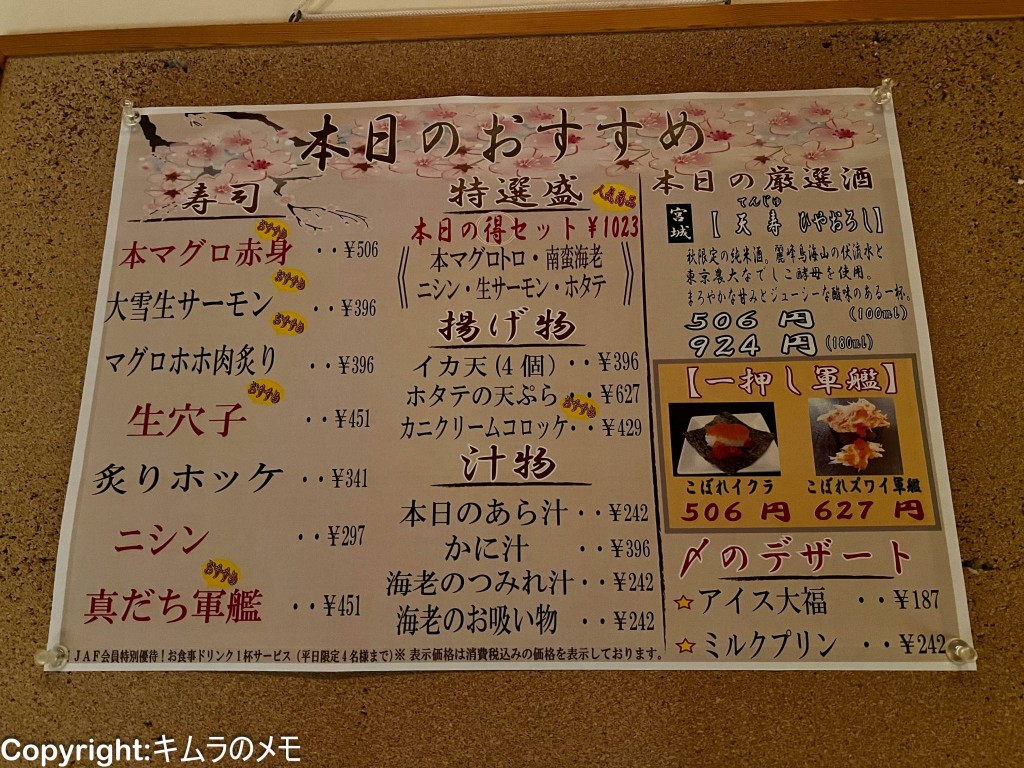 本日のおすすめ
寿司
おすすめ
本マグロ赤身 ・・¥506
おすすめ
大雪生サーモン ・・¥396
おすすめ
マグロホホ肉炙り ・・¥396
おすすめ
生穴子 ・・¥451
炙りホッケ ・・¥341
ニシン ・・¥297
おすすめ
真だち軍艦 ・・¥451
特選盛
人気商品
本日の得セット ¥1023
《本マグロトロ・南蛮海老
ニシン・生サーモン・ホタテ》
揚げ物
イカ天(4個)・・¥396
ホタテの天ぷら・・¥627
おすすめ
カニクリームコロッケ・・¥429
汁物
本日のあら汁・・¥242
かに汁 ・・¥396
海老のつみれ汁・・¥242
海老のお吸い物 ・・¥242
本日の厳選酒
宮城
てんじゅ
【天寿 ひやおろし】
秋限定の純米酒。麗峰鳥海山の伏流水と
東京農大なでしこ酵母を使用。
まろやかな甘みとジューシーな酸味のある一杯。
506 円 (100ml)
924 円 (180ml)
【一押し軍艦】
こぼれイクラ
506 円
こぼれズワイ軍艦
627 円
〆のデザート
アイス大福 ・・¥187
ミルクプリン ・・¥242
JAF会員特別優待!お食事ドリンク1杯サービス(平日限定4名様まで)※表示価格は消費税込みの価格を表示しております。
Copyright:キムラのメモ